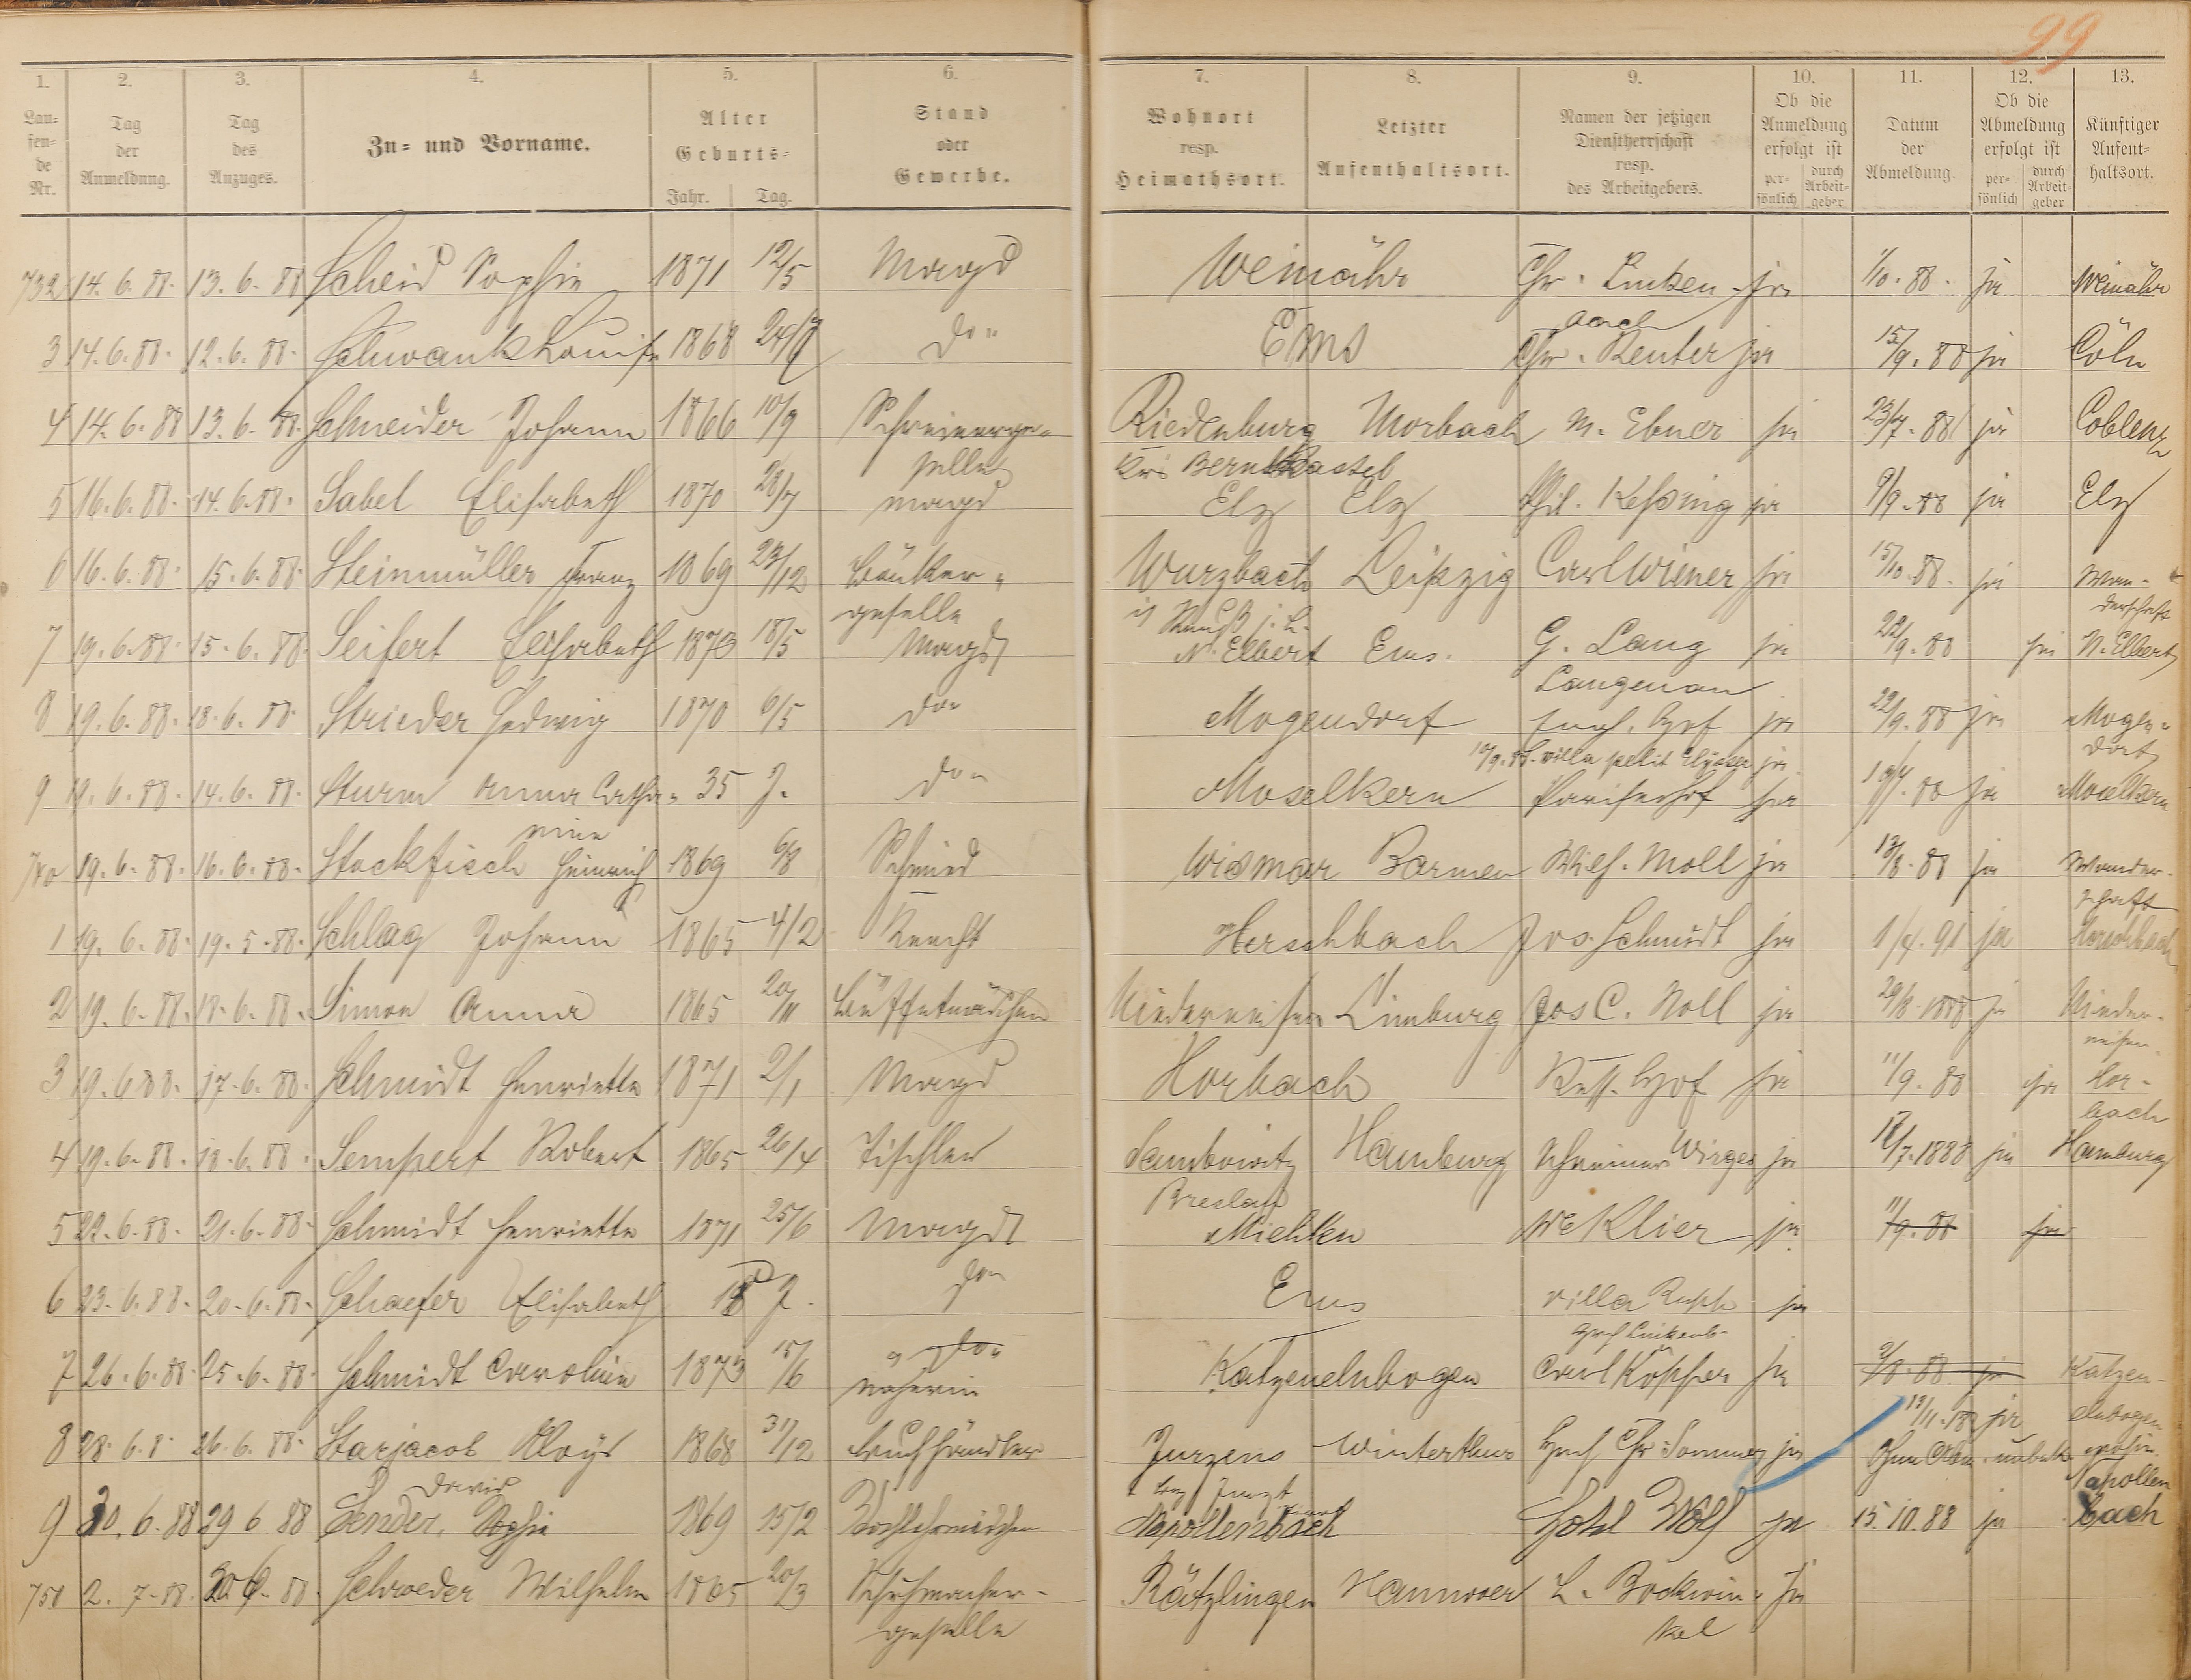 99
1. 2. 3. 4. 5. 6. 7. 8. 9. 10. 11. 12. 13.
Lau=
fen=
de
Nr.
Tag
der
Anmeldung.
Tag
des
Anzuges.
Zu= und Vorname.
Alter
Geburts=
Jahr. Tag.
Stand
oder
Gewerbe.
Wohnort
resp.
Heimathsort.
Letzter
Aufenthaltsort.
Namen der jetzigen
Dienstherrschaft
resp.
des Arbeitgebers.
Ob die
Anmeldung
erfolgt ist
per=
sönlich
durch
Arbeit=
geber
Datum
der
Abmeldung.
Ob die
Abmeldung
erfolgt ist
per=
sönlich
durch
Arbeit=
geber
Künftiger
Aufent=
haltsort.
732 14. 6. 88. 13. 6. 88 Scheid Sophie 1871 12/5 Magd Weinähr Chr. Linken= ja 1/10. 88. ja Weinähr
bach
3 14. 6. 88. 12. 6. 88. Schwank Louise 1868 do" Ems Chr. Reuter ja 15/9. 88 ja Cöln
4 14. 6. 88 13. 6. 88. Schneider Johann 1866 10/9 Schreinerge= Riedenburg Morbach M. Ebner ja 23/7. 88 ja Coblenz
selle Krs Bernkastel
5 16. 6. 88. 14. 6. 88. Sabel Elisabeth 1870 28/7 Magd Elz Elz Phil. ja 9/9. 88 ja Elz
6 16. 6. 88. 15. 6. 88. Steinmüller Franz 1869 23/12 Bäcker= Wurzbach Leipzig Carl Wiener ja 15/10. 88. ja Wan=
geselle Reuß j. L. derschaft
7 19. 6. 88. 15. 6. 88. Seifert Elisabeth 1873 18/5 Magd N. Elbert Ems. G. Lang ja 22/9. 88 ja N. Elbert
Langenau
8 19. 6. 88. 18. 6. 88. Strieder Hedwig 1870 6/5 do" Mogendorf Engl. Hof ja 22/9. 88 ja Mogen=
dorf
10/9. 88. Villa petit Elysée ja.
9 19. 6. 88. 14. 6. 88. Sturm Anna Catha= 35 J. do" Moselkern Pariserhof ja 88 ja Moselkern
rine
740 19. 6. 88. 16. 6. 88. Stockfisch Heinrich 1869 6/8 Schmied Wismar Barmen Wilh. Moll ja 13/8. 88 ja Wander=
schaft
1 19. 6. 88. 19. 5. 88. Schlag Johann 1865 4/2 Knecht Herschbach Jos. Schmidt ja 1/4. 91 ja Herschbach
2 19. 6. 88. 18. 6. 88. Simon Anna 1865 20/11 Büffetmädchen Niederneisen Limburg Jos C. Noll ja 29/8. 1888 ja Nieder=
neisen.
3 19. 6 88. 17. 6. 88. Schmidt Henriette 1871 2/1 Magd Horbach Russ. Hof ja 11/9. 88 ja Hor=
bach
4 19. 6. 88. 18. 6. 88. Sempert Robert 1865 26/4 Tischler Sambowitz Hamburg Schreiner Wirges ja 18/7. 1888 ja Hamburg
Breslau
5 22. 6. 88. 21. 6. 88. Schmidt Henriette 1871 25/6 Magd Miehlen We Klier ja 11/9. 88 ja
6 23. 6. 88. 20. 6. 88. Schaefer Elisabeth 18 J. do" Ems Villa ja
7 26. 6. 88. 25. 6. 88. Schmidt Caroline 1873 15/6 do" Katzenelnbogen Carl Köpper ja 88. ja Katzen=
Näherin 88 ja elnbogen
8 28. 6. 8. 26. 6. 88. Starjacob Aloys 1868 31/12 Buchhändler Jurzens Winterthur Chr. Sommer ja Ohne Abm.
9 30. 6. 88 29 6 88 Sender, Sophie 1869 15/2 Kochlehrmädchen Napollenbach Hotel Wolf ja 15. 10. 88 ja Napollen
bach
751 2. 7. 88. 30 6. 88. Schroeder Wilhelm 1865 20/3 Schuhmacher= Rätzlingen Hannover L. Bockwin= ja
geselle kel